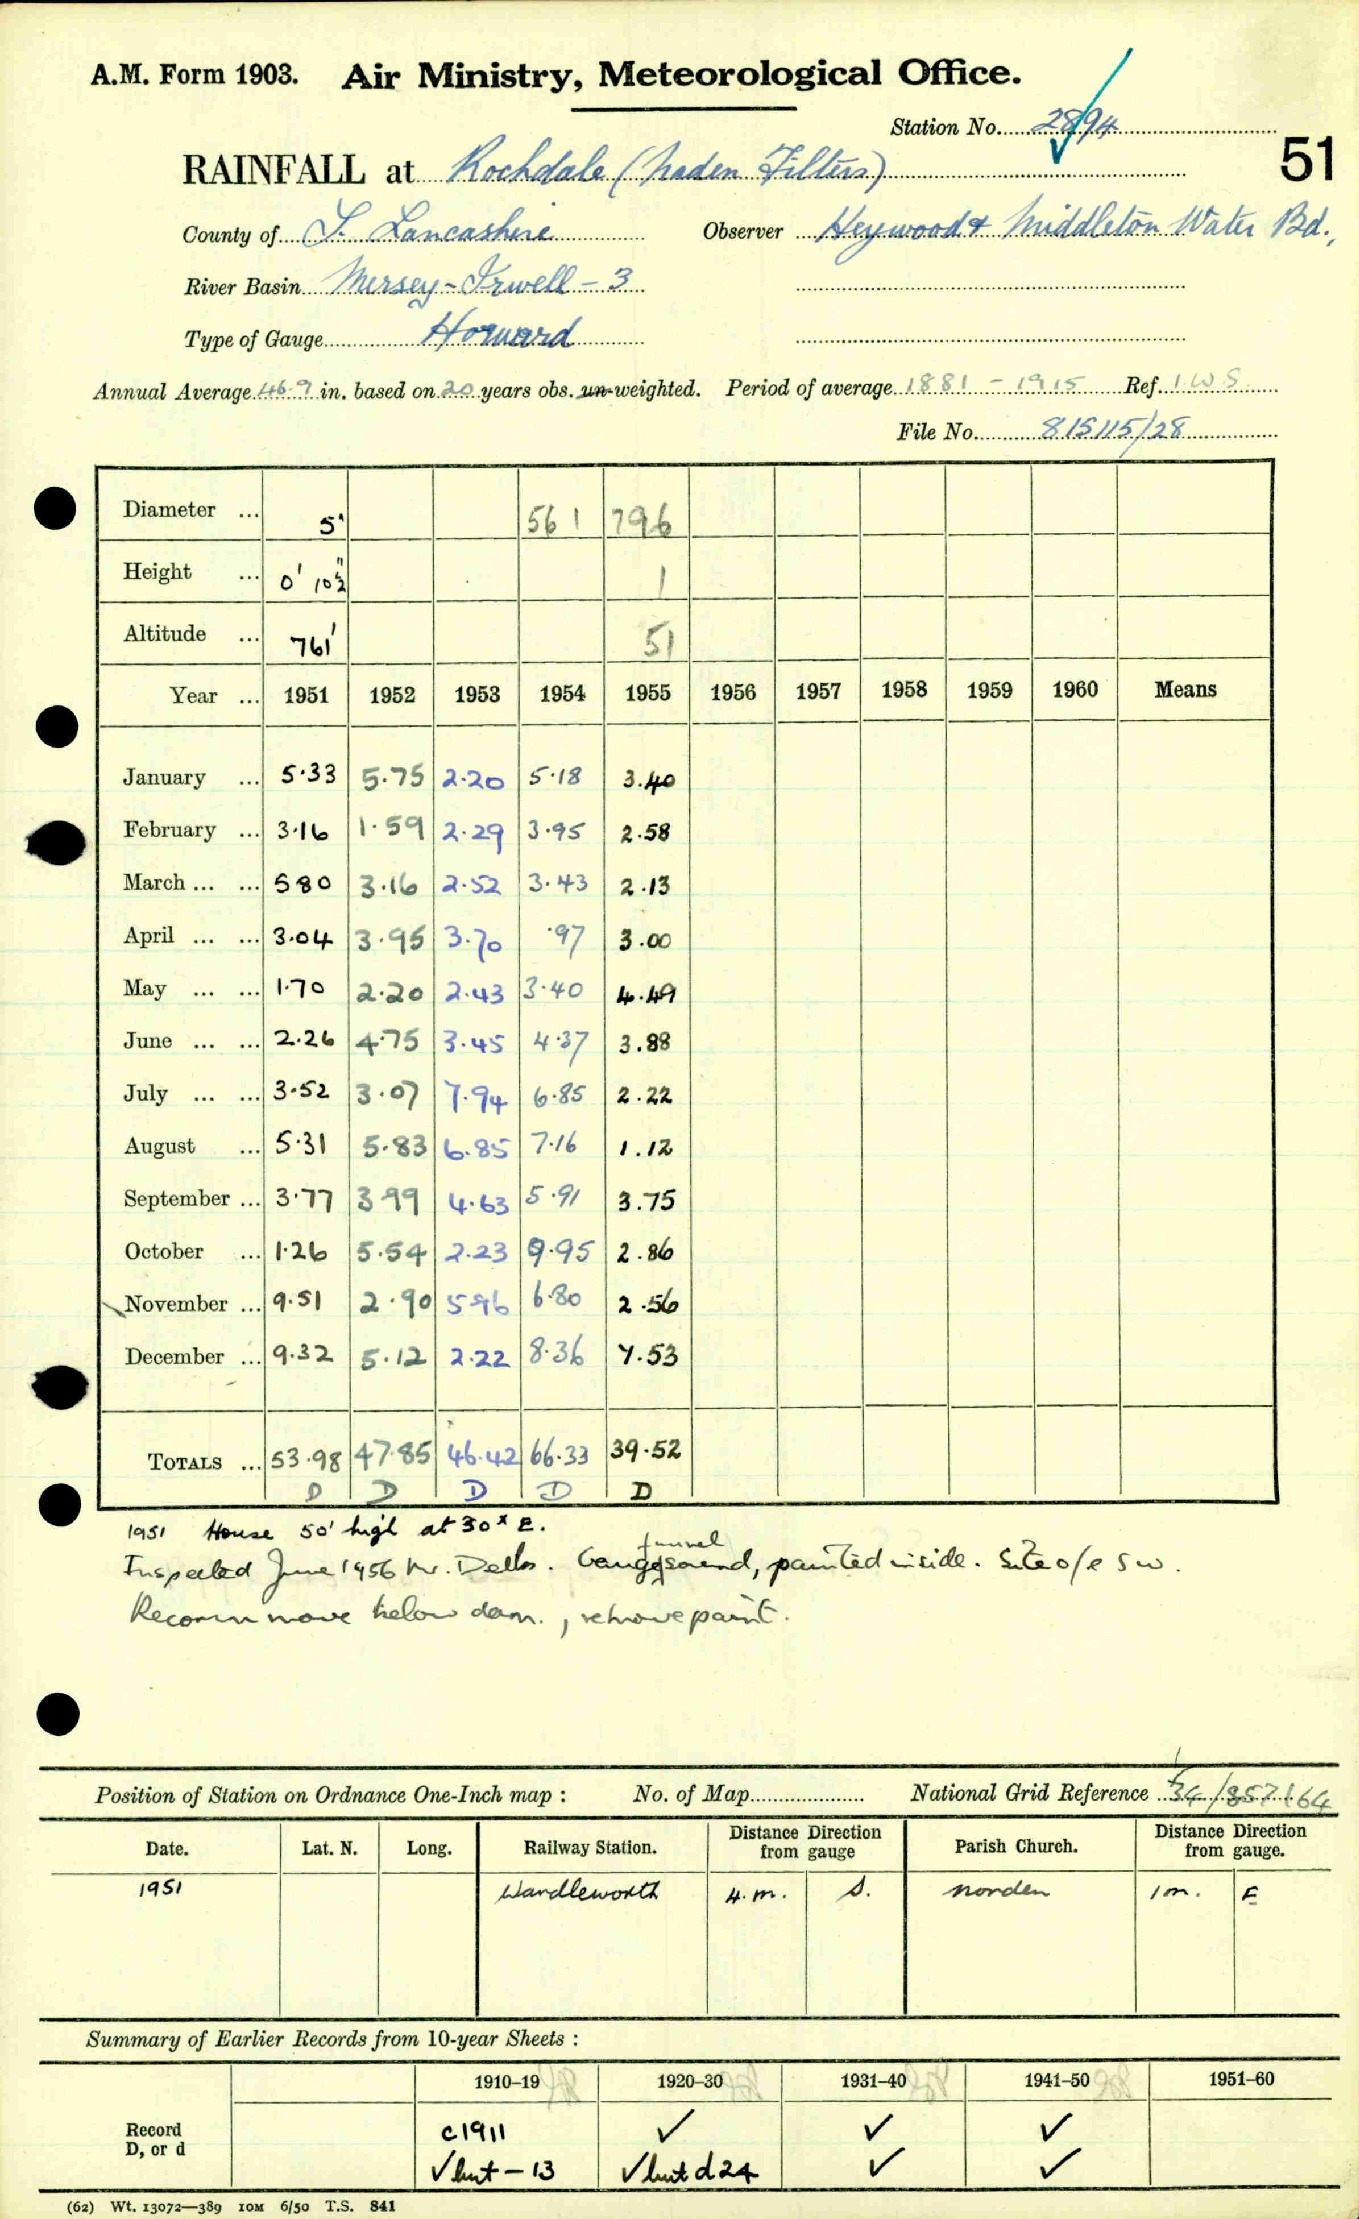 A.M. Form 1903. Air Ministry, Meteorological Office.
Station No. 2894
51
RAINFALL at Rochdale (Naden Filters)
County of S. Lancashire Observer Heywood & Middleton Water Bd.,
River Basin Mersey-Irwell - 3
Type of Gauge Howard
Annual Average 46.9 in. based on 20 years obs. un-weighted. Period of average 1881 - 1915 Ref. I W S
File No. 815115/28
Diameter ... 5" 561 796
Height ... 0' 10½" 1
Altitude ... 761' 51
Year ... 1951 1952 1953 1954 1955 1956 1957 1958 1959 1960 Means
January ... 5.33 5.75 2.20 5.18 3.40
February ... 3.16 1.59 2.29 3.95 2.58
March ... ... 5 80 3.16 2.52 3.43 2.13
April ... ... 3.04 3.95 3.70 .97 3.00
May ... ... 1.70 2.20 2.43 3.40 4.49
June ... ... 2.26 4.75 3.45 4.37 3.88
July ... ... 3.52 3.07 7.94 6.85 2.22
August ... 5.31 5.83 6.85 7.16 1.12
September ... 3.77 3 99 4.63 5.91 3.75
October ... 1.26 5.54 2.23 9.95 2.86
November ... 9.51 2.90 5.96 6.80 2.56
December ... 9.32 5.12 2.22 8.36 7.53
TOTALS ... 53.98 47.85 46.42 66.33 39.52
D D D D D
1951 House 50' high at 30x E.
funnel
Inspected June 1956 Mr. Dells. Gauge sound, painted inside. Site o/e SW.
Recomm move below dam., remove paint.
Position of Station on Ordnance One-Inch map : No. of Map National Grid Reference 34/857164
Date. Lat. N. Long. Railway Station. Distance Direction from gauge Parish Church. Distance Direction from gauge.
1951 Wardleworth 4. m. S. Norden 1 m. E
Summary of Earlier Records from 10-year Sheets :
1910–19 1920–30 1931–40 1941–50 1951–60
Record c1911 ✓ ✓ ✓
D, or d ✓ but - 13 ✓ but d 24 ✓ ✓
(62) Wt. 13072—389 10M 6/50 T.S. 841